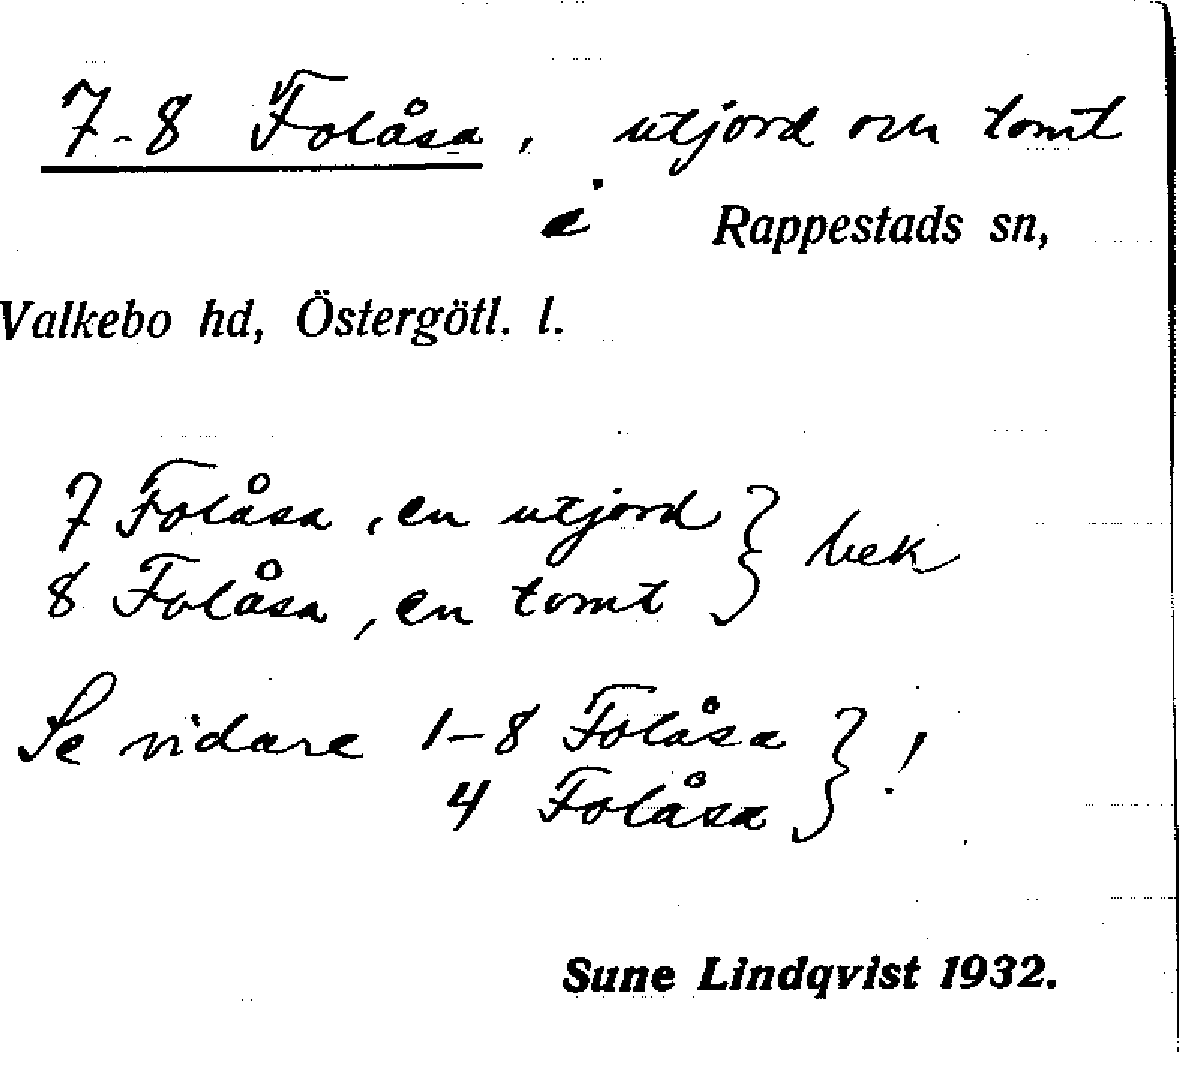 7-8 Folåsa, utjord och tomt
i Rappestads sn,
Valkebo hd, Östergötl. l.
7 Folåsa, en utjord } bek
8 Folåsa, en tomt
Se vidare 1-8 Folåsa } !
4 Folåsa
Sune Lindqvist 1932.